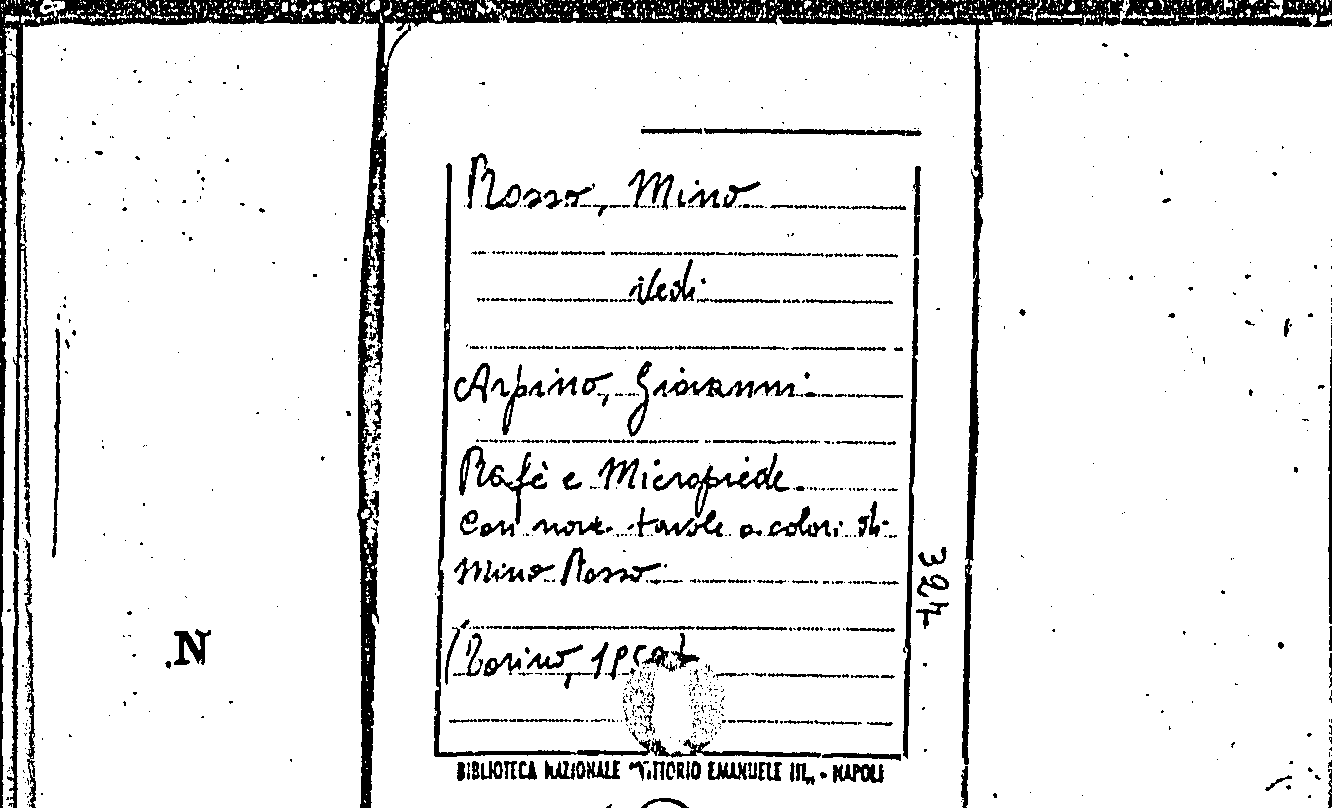 Rosso, Mino
Vedi
Arpino, Giovanni
Rafè e Micropiede.
Con nove tavole a colori di
Mino Rosso
(Torino,
324
.N
BIBLIOTECA NAZIONALE "VITTORIO EMANUELE III„ - NAPOLI